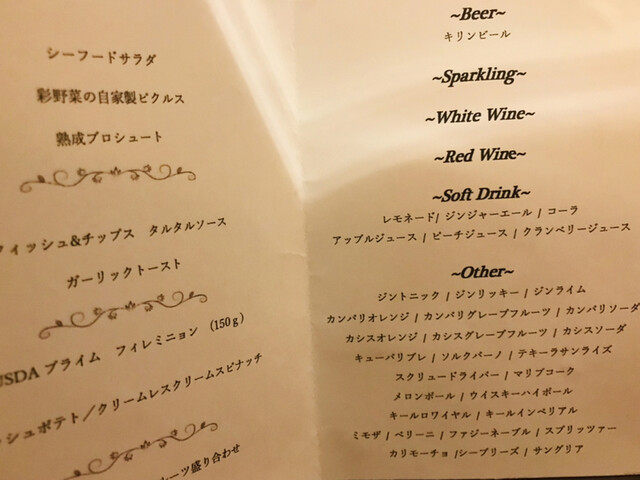 シーフードサラダ
彩野菜の自家製ピクルス
熟成プロシュート
フィッシュ&チップス タルタルソース
ガーリックトースト
USDAプライム フィレミニョン (150g)
シュポテト／クリームレスクリームスピナッチ
ーツ盛り合わせ
~Beer~
キリンビール
~Sparkling~
~White Wine~
~Red Wine~
~Soft Drink~
レモネード/ ジンジャーエール / コーラ
アップルジュース / ピーチジュース / クランベリージュース
~Other~
ジントニック / ジンリッキー / ジンライム
カンパリオレンジ / カンパリグレープフルーツ / カンパリソーダ
カシスオレンジ / カシスグレープフルーツ / カシスソーダ
キューバリブレ / ソルクバーノ / テキーラサンライズ
スクリュードライバー / マリブコーク
メロンボール / ウイスキーハイボール
キールロワイヤル / キールインペリアル
ミモザ / ベリーニ / ファジーネーブル / スプリッツァー
カリモーチョ /シーブリーズ / サングリア